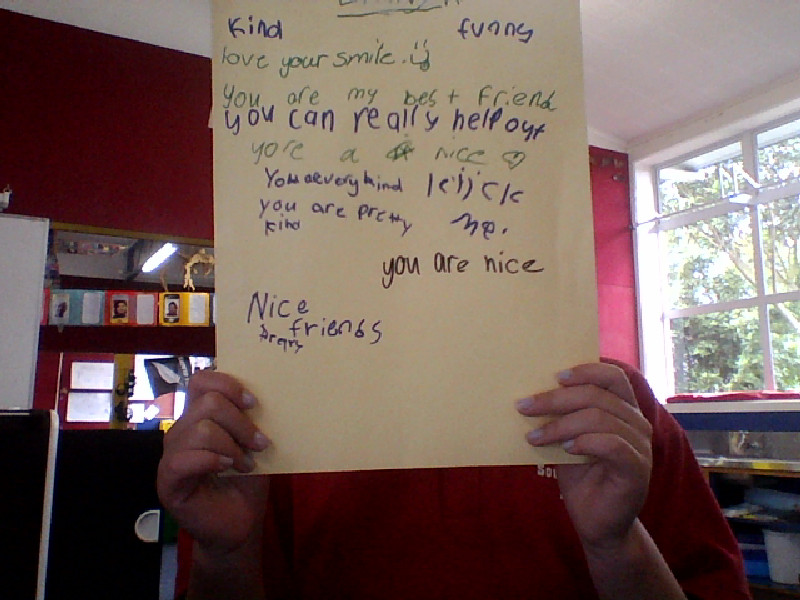 Kind funny
love your smile.
you are my best friend
you can really help out
yore a nice
You are very kind
you are pretty
kind
you are nice
Nice
friends